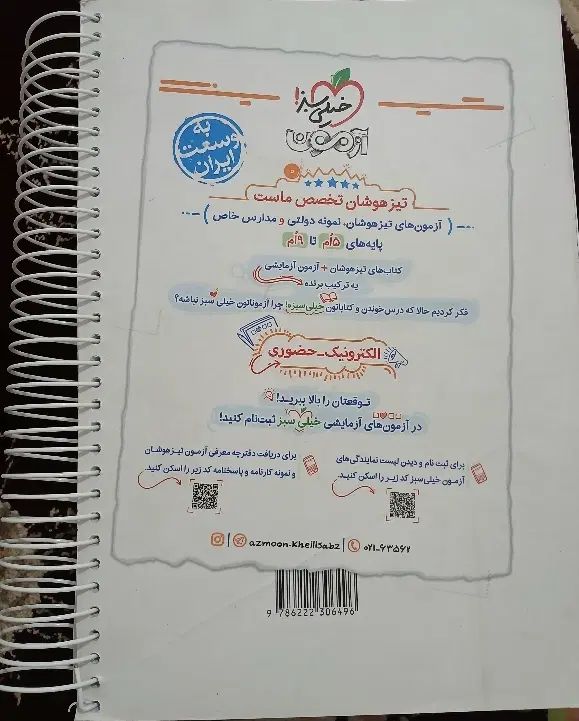 خیلی سبز!
آزمون
به
وسعت
ایران
تیزهوشان تخصص ماست
( آزمون‌های تیزهوشان، نمونه دولتی و مدارس خاص )
پایه‌های ۵اُم تا ۹اُم
کتاب‌های تیزهوشان + آزمون آزمایشی
یه ترکیب برنده
فکر کردیم حالا که درس‌خوندن و کتاباتون خیلی‌سبزه! چرا آزموناتون خیلی سبز نباشه؟
الکترونیک-حضوری
توقعتان را بالا ببرید!
در آزمون‌های آزمایشی خیلی سبز ثبت‌نام کنید!
برای ثبت نام و دیدن لیست نمایندگی‌های
آزمون خیلی‌سبز کد زیر را اسکن کنید.
برای دریافت دفترچه معرفی آزمون تیزهوشان
و نمونه کارنامه و پاسخنامه کد زیر را اسکن کنید.
azmoon.kheilisabz | ۰۲۱-۶۳۵۶۲
9 786222 306496